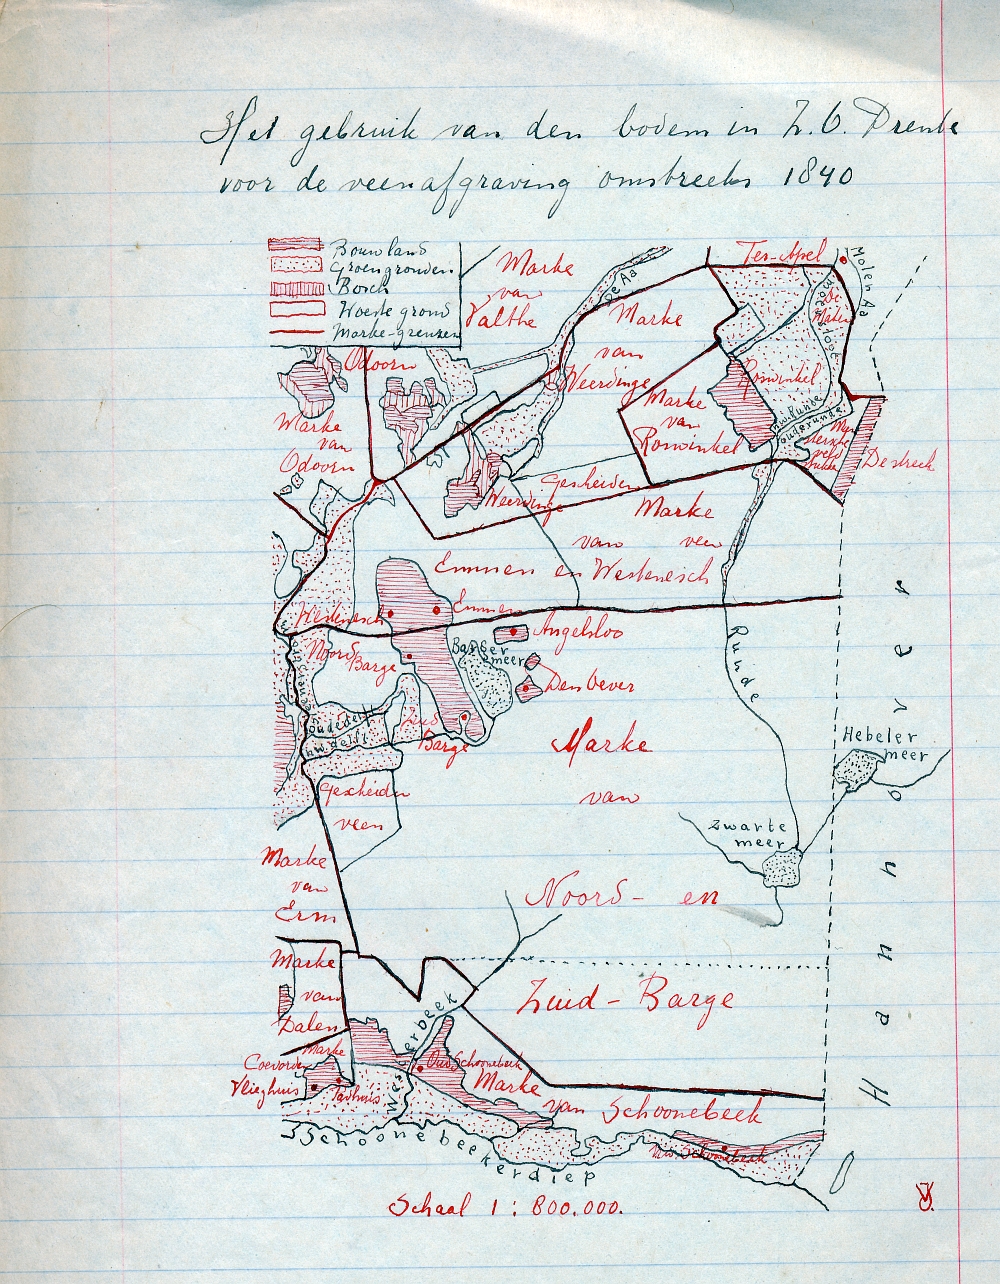 Het gebruik van den bodem in Z.O. Drente
voor de veenafgraving omstreeks 1840
Bouwland
Groengronden
Bosch
Woeste grond
Marke-grenzen
Marke
van
Valthe
De Aa
Ter-Apel
Molen Aa
Marke
van
Weerdinge
Odoorn
Marke
van
Odoorn
Roswinkel
Marke
van
Roswinkel
nw. Runde
ouderunde
De streek
Gescheiden
Weerdinge
Marke
van veen
Emmen en Westenesch
Westenesch
Emmen
Angelsloo
Noord
Barge
Barger
meer
Den Oever
Zuid
Barge
Oudedelft
nw. delft
Runde
Marke
van
Noord- en
Zuid - Barge
Hebeler
meer
Zwarte
meer
Gescheiden
veen
Marke
van
Erm
Marke
van
Dalen
Marke
Coevorden
Vlieghuis
Westerbeek
Oud Schoonebeek
Marke
van Schoonebeek
Nw. Schoonebeek
Schoonebeekerdiep
Hanuover
Schaal 1 : 800.000.